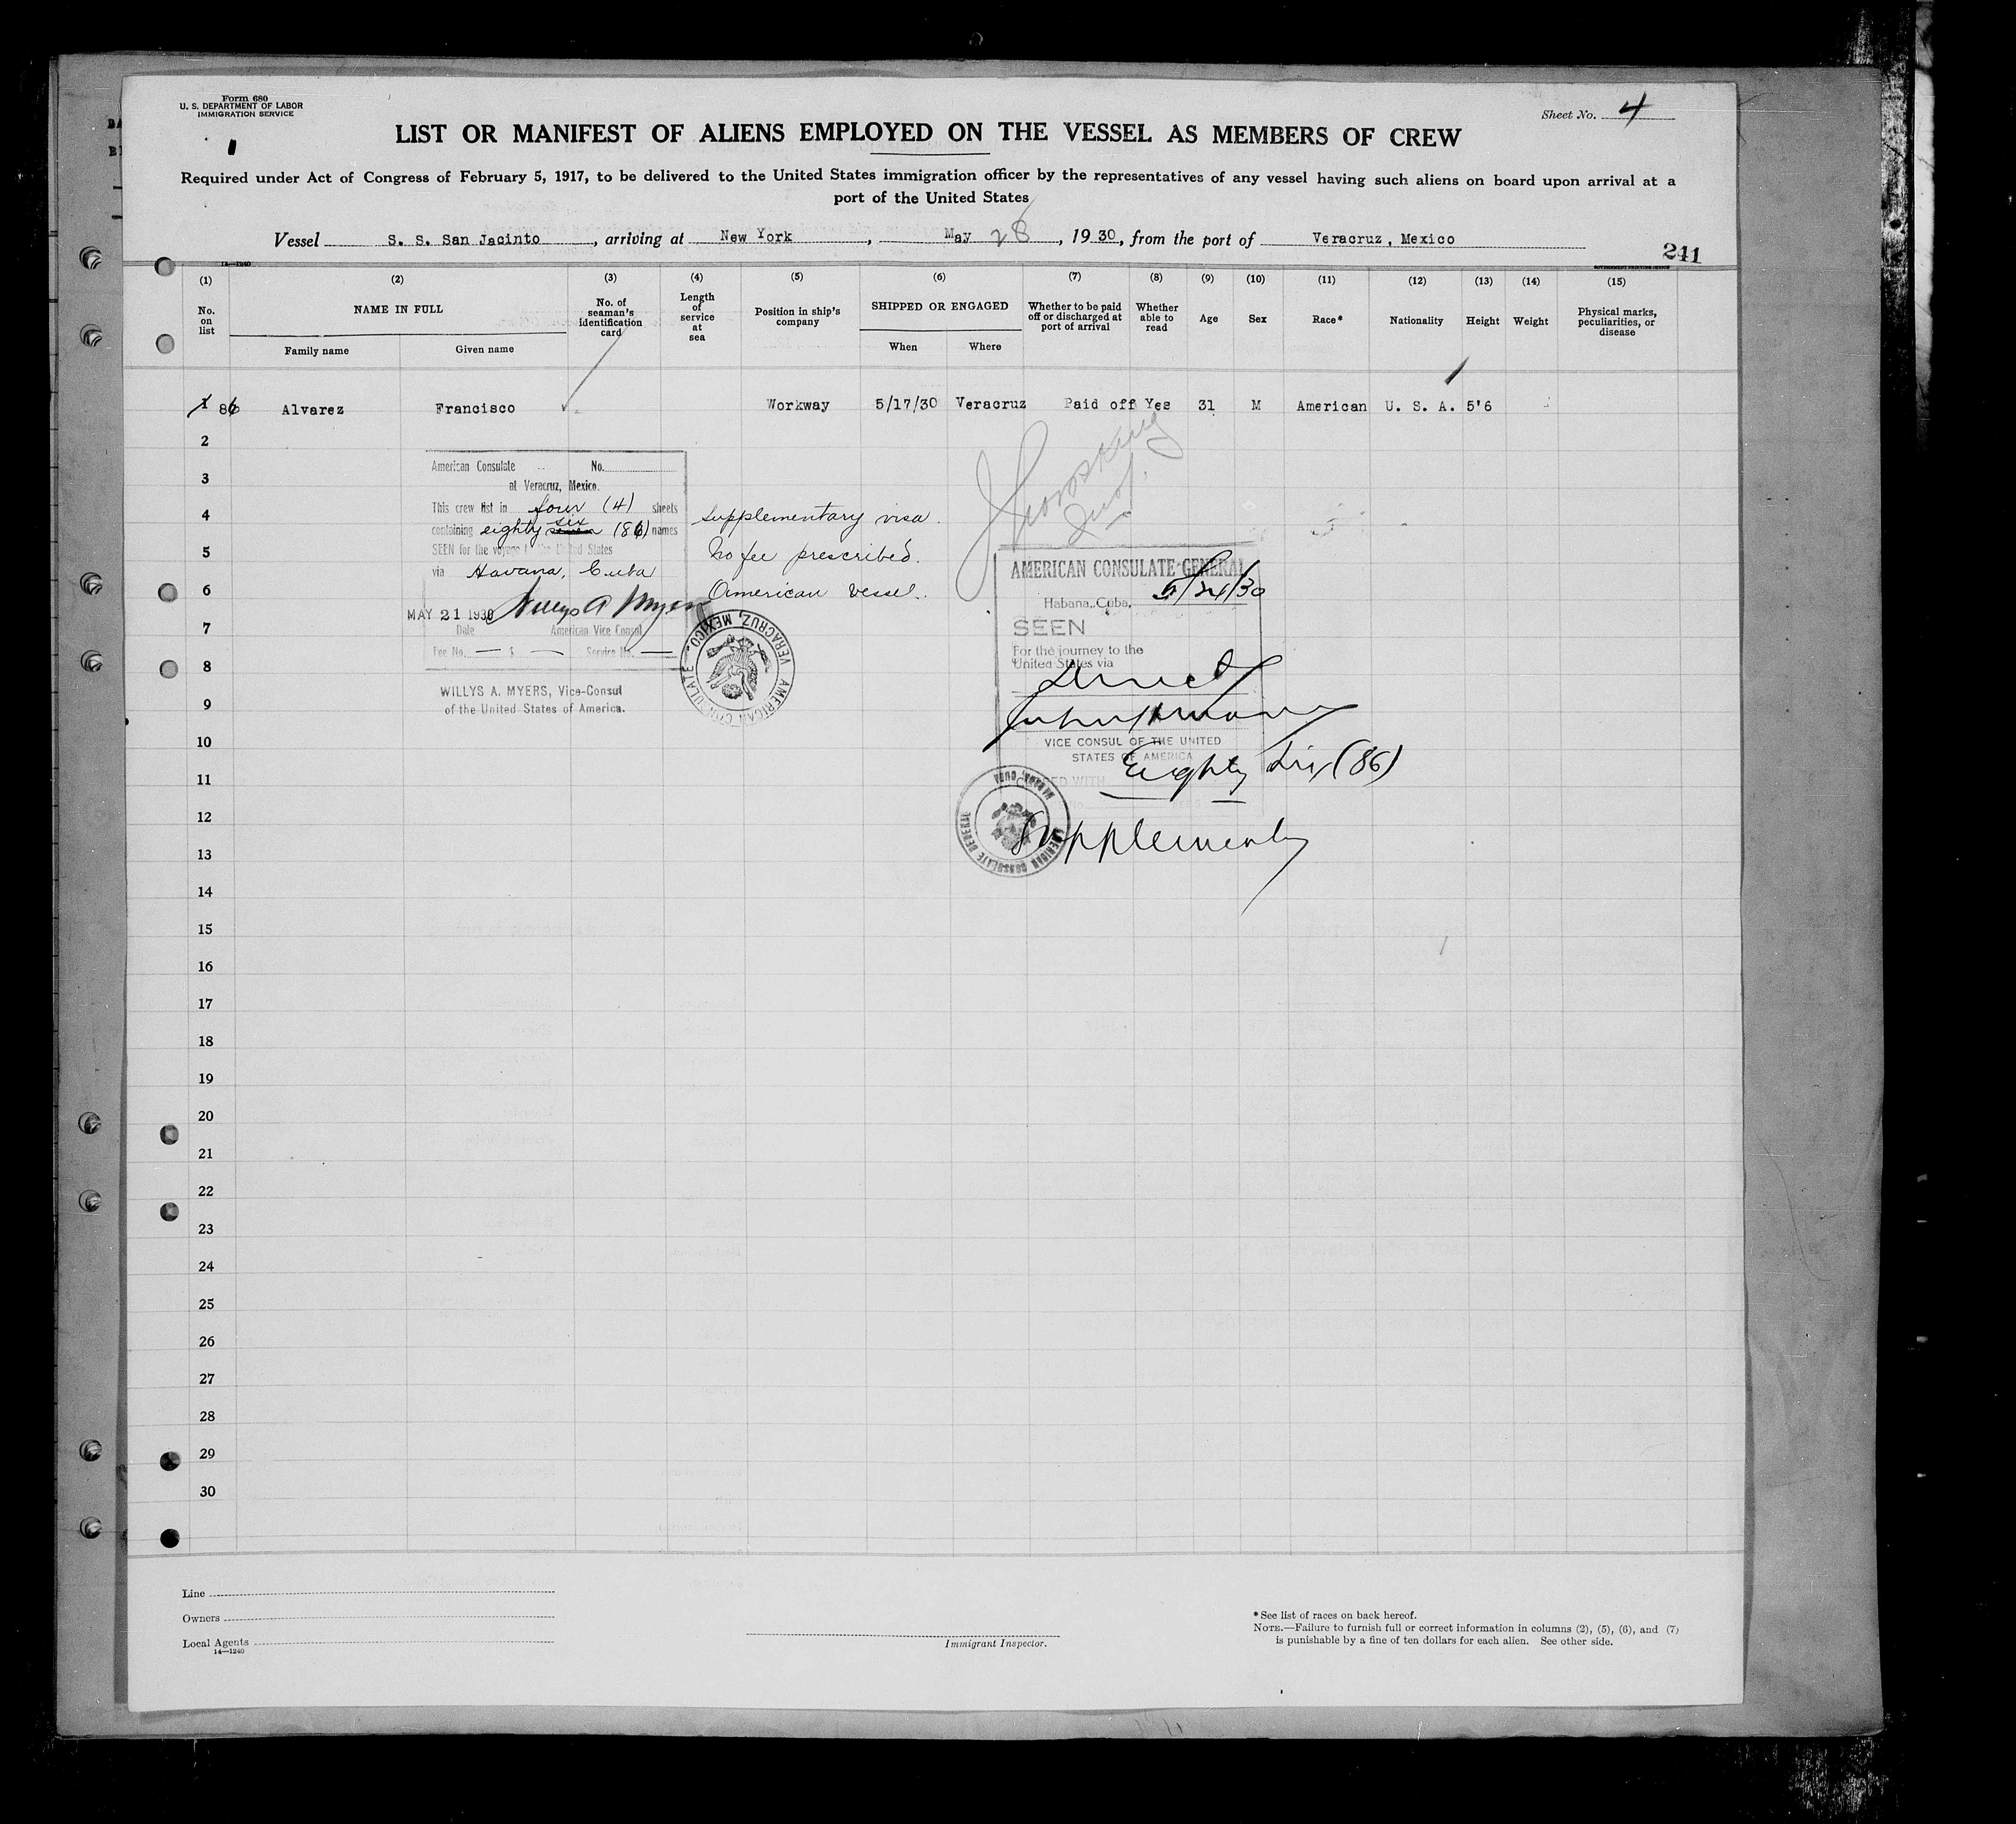 Form 680
U. S. DEPARTMENT OF LABOR
IMMIGRATION SERVICE
Sheet No. 4
LIST OR MANIFEST OF ALIENS EMPLOYED ON THE VESSEL AS MEMBERS OF CREW
Required under Act of Congress of February 5, 1917, to be delivered to the United States immigration officer by the representatives of any vessel having such aliens on board upon arrival at a
port of the United States
Vessel S. S. San Jacinto, arriving at New York, May 28, 1930, from the port of Veracruz, Mexico
241
14—1240
(1) (2) (3) (4) (5) (6) (7) (8) (9) (10) (11) (12) (13) (14) (15)
No. on list
NAME IN FULL
Family name
Given name
No. of seaman's identification card
Length of service at sea
Position in ship's company
SHIPPED OR ENGAGED
When
Where
Whether to be paid off or discharged at port of arrival
Whether able to read
Age
Sex
Race*
Nationality
Height
Weight
Physical marks, peculiarities, or disease
1 86 Alvarez Francisco Workway 5/17/30 Veracruz Paid off Yes 31 M American U. S. A. 5'6
2
3
4
5
6
7
8
9
10
11
12
13
14
15
16
17
18
19
20
21
22
23
24
25
26
27
28
29
30
American Consulate No.
at Veracruz, Mexico.
This crew list in four (4) sheets
containing eighty six (86) names
SEEN for the voyage to the United States
via Havana, Cuba
MAY 21 1930 Willys A Myers
Date American Vice Consul
Fee No. — $ — Service No. —
WILLYS A. MYERS, Vice-Consul
of the United States of America.
AMERICAN CONSULATE VERACRUZ, MEXICO
Supplementary visa.
No fee prescribed.
American vessel.
AMERICAN CONSULATE GENERAL
Habana, Cuba, 5/24/30
SEEN
For the journey to the
United States via
Direct
VICE CONSUL OF THE UNITED
STATES OF AMERICA
Eighty Six (86)
AMERICAN CONSULATE GENERAL HABANA, CUBA
Supplementary
Line
Owners
Local Agents
14—1240
Immigrant Inspector.
* See list of races on back hereof.
NOTE.—Failure to furnish full or correct information in columns (2), (5), (6), and (7)
is punishable by a fine of ten dollars for each alien. See other side.